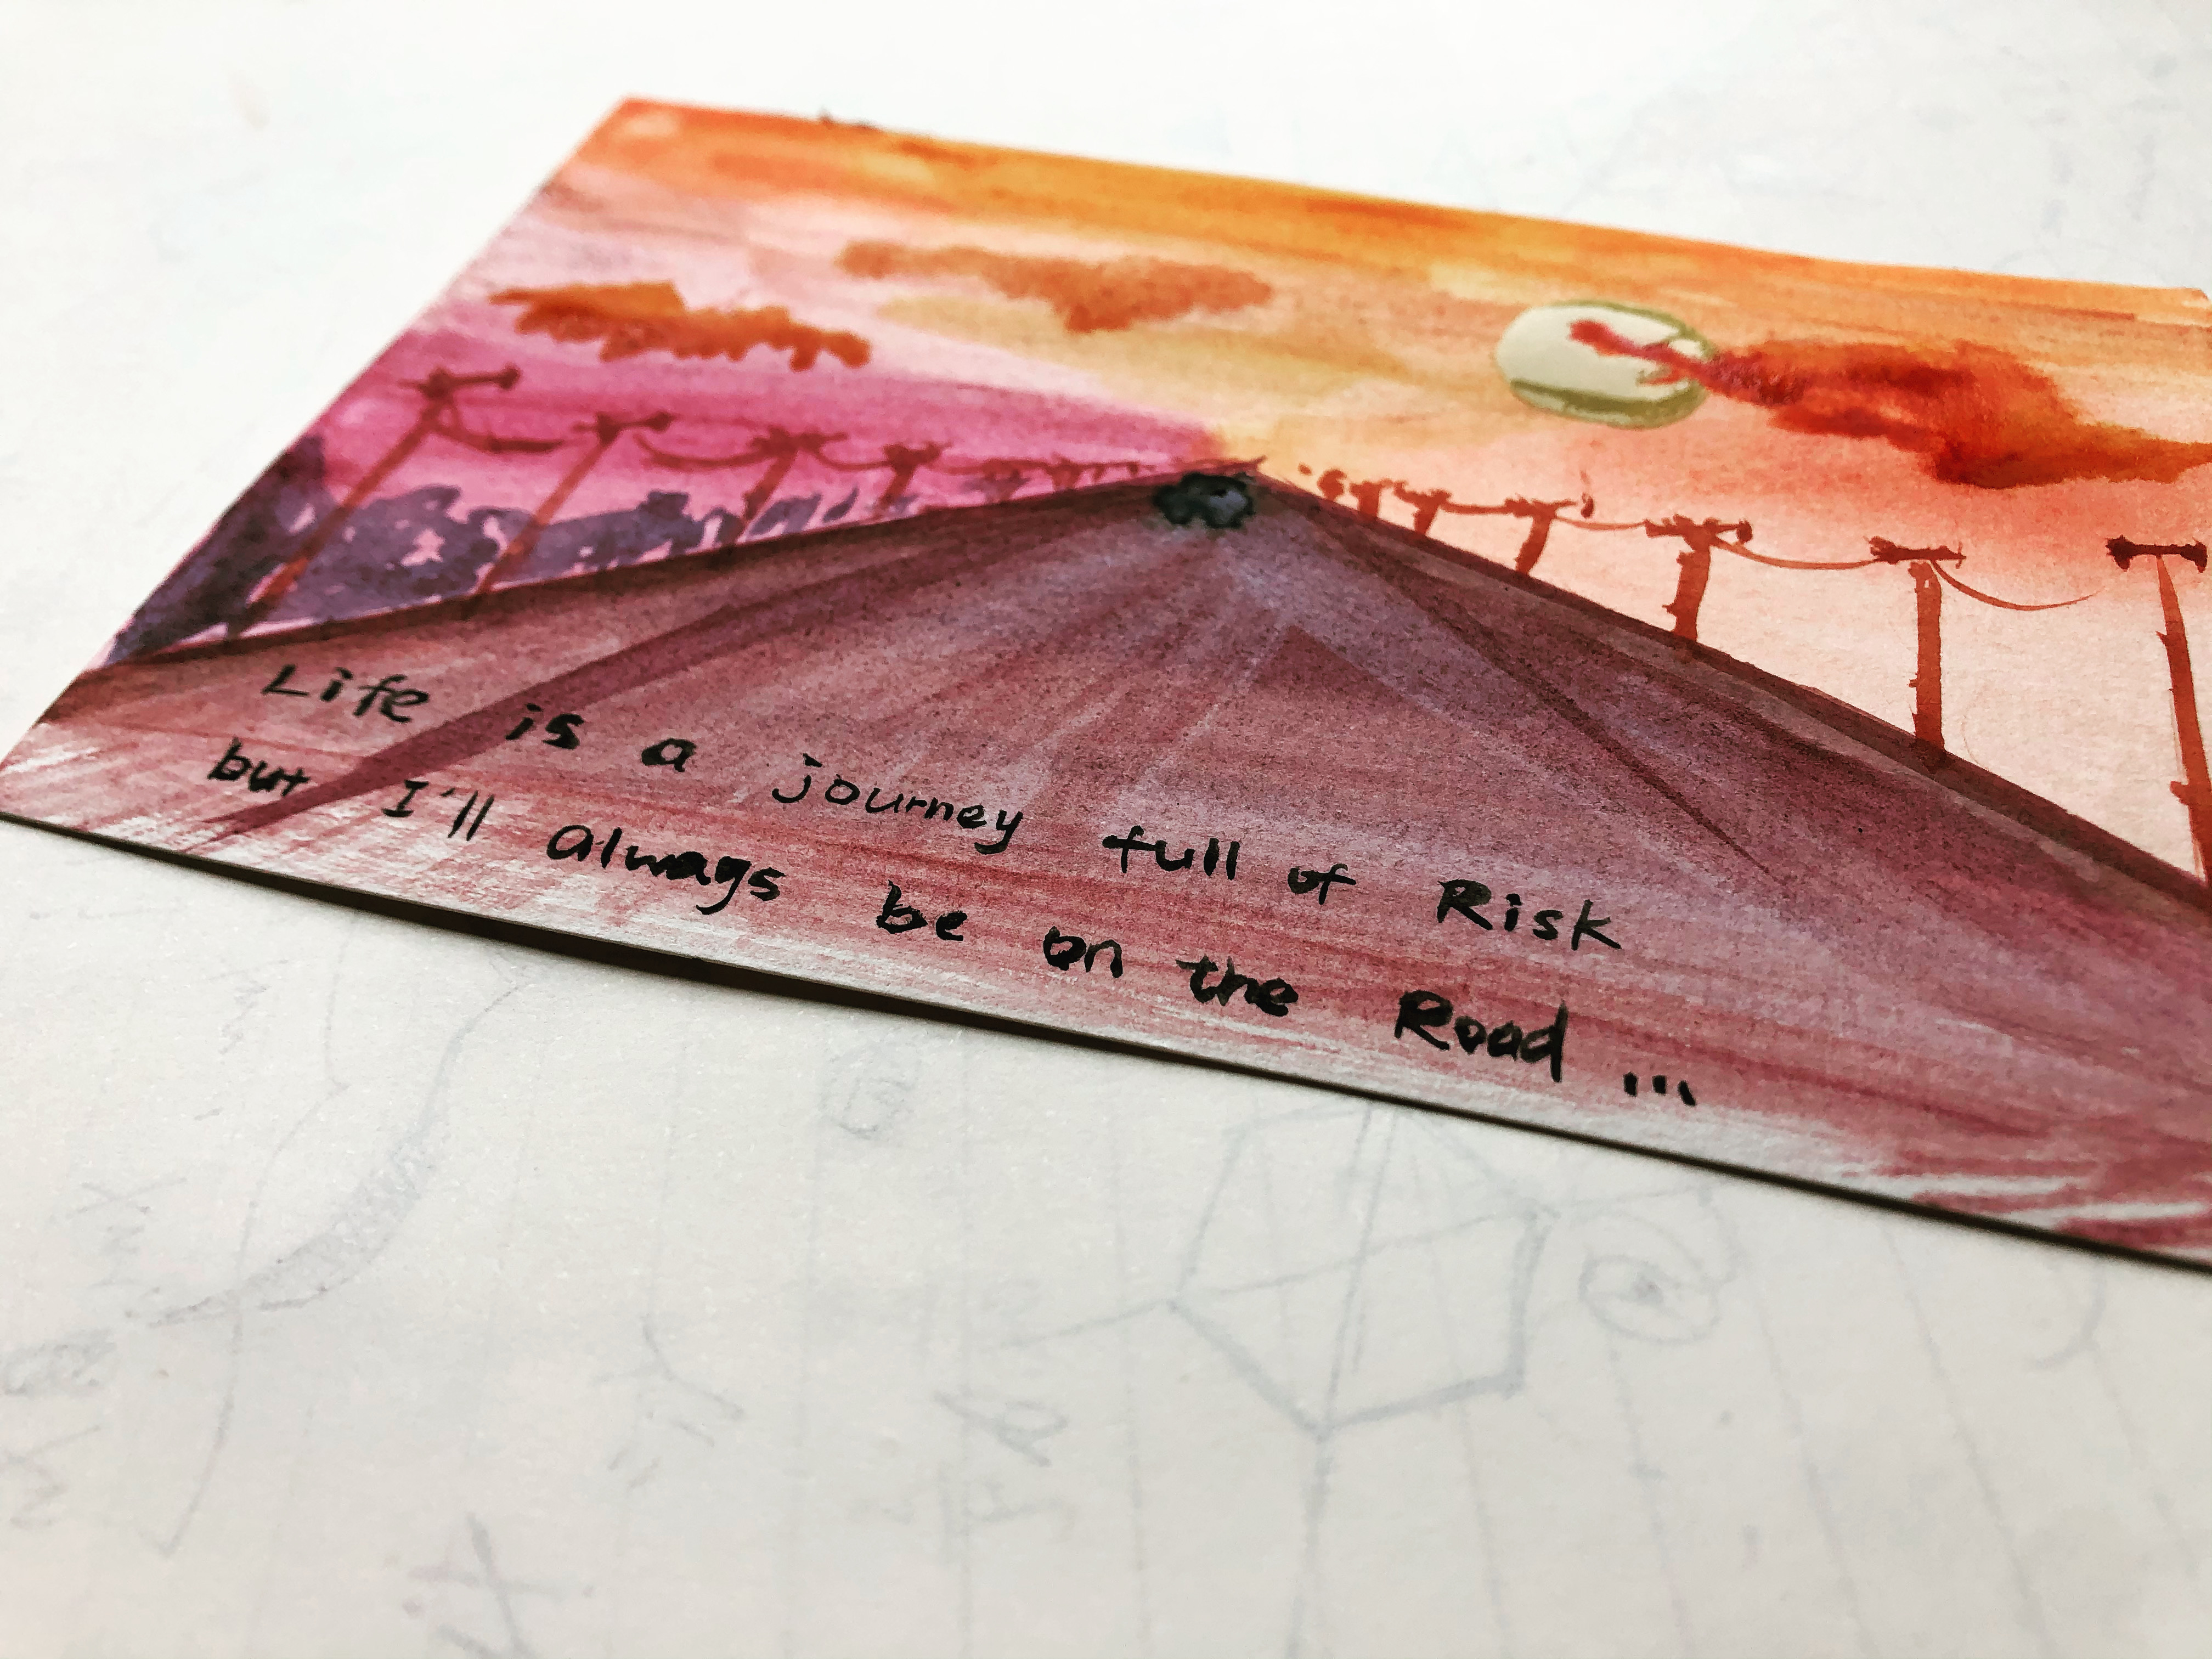 Life is a journey full of Risk
but I'll always be on the Road ...